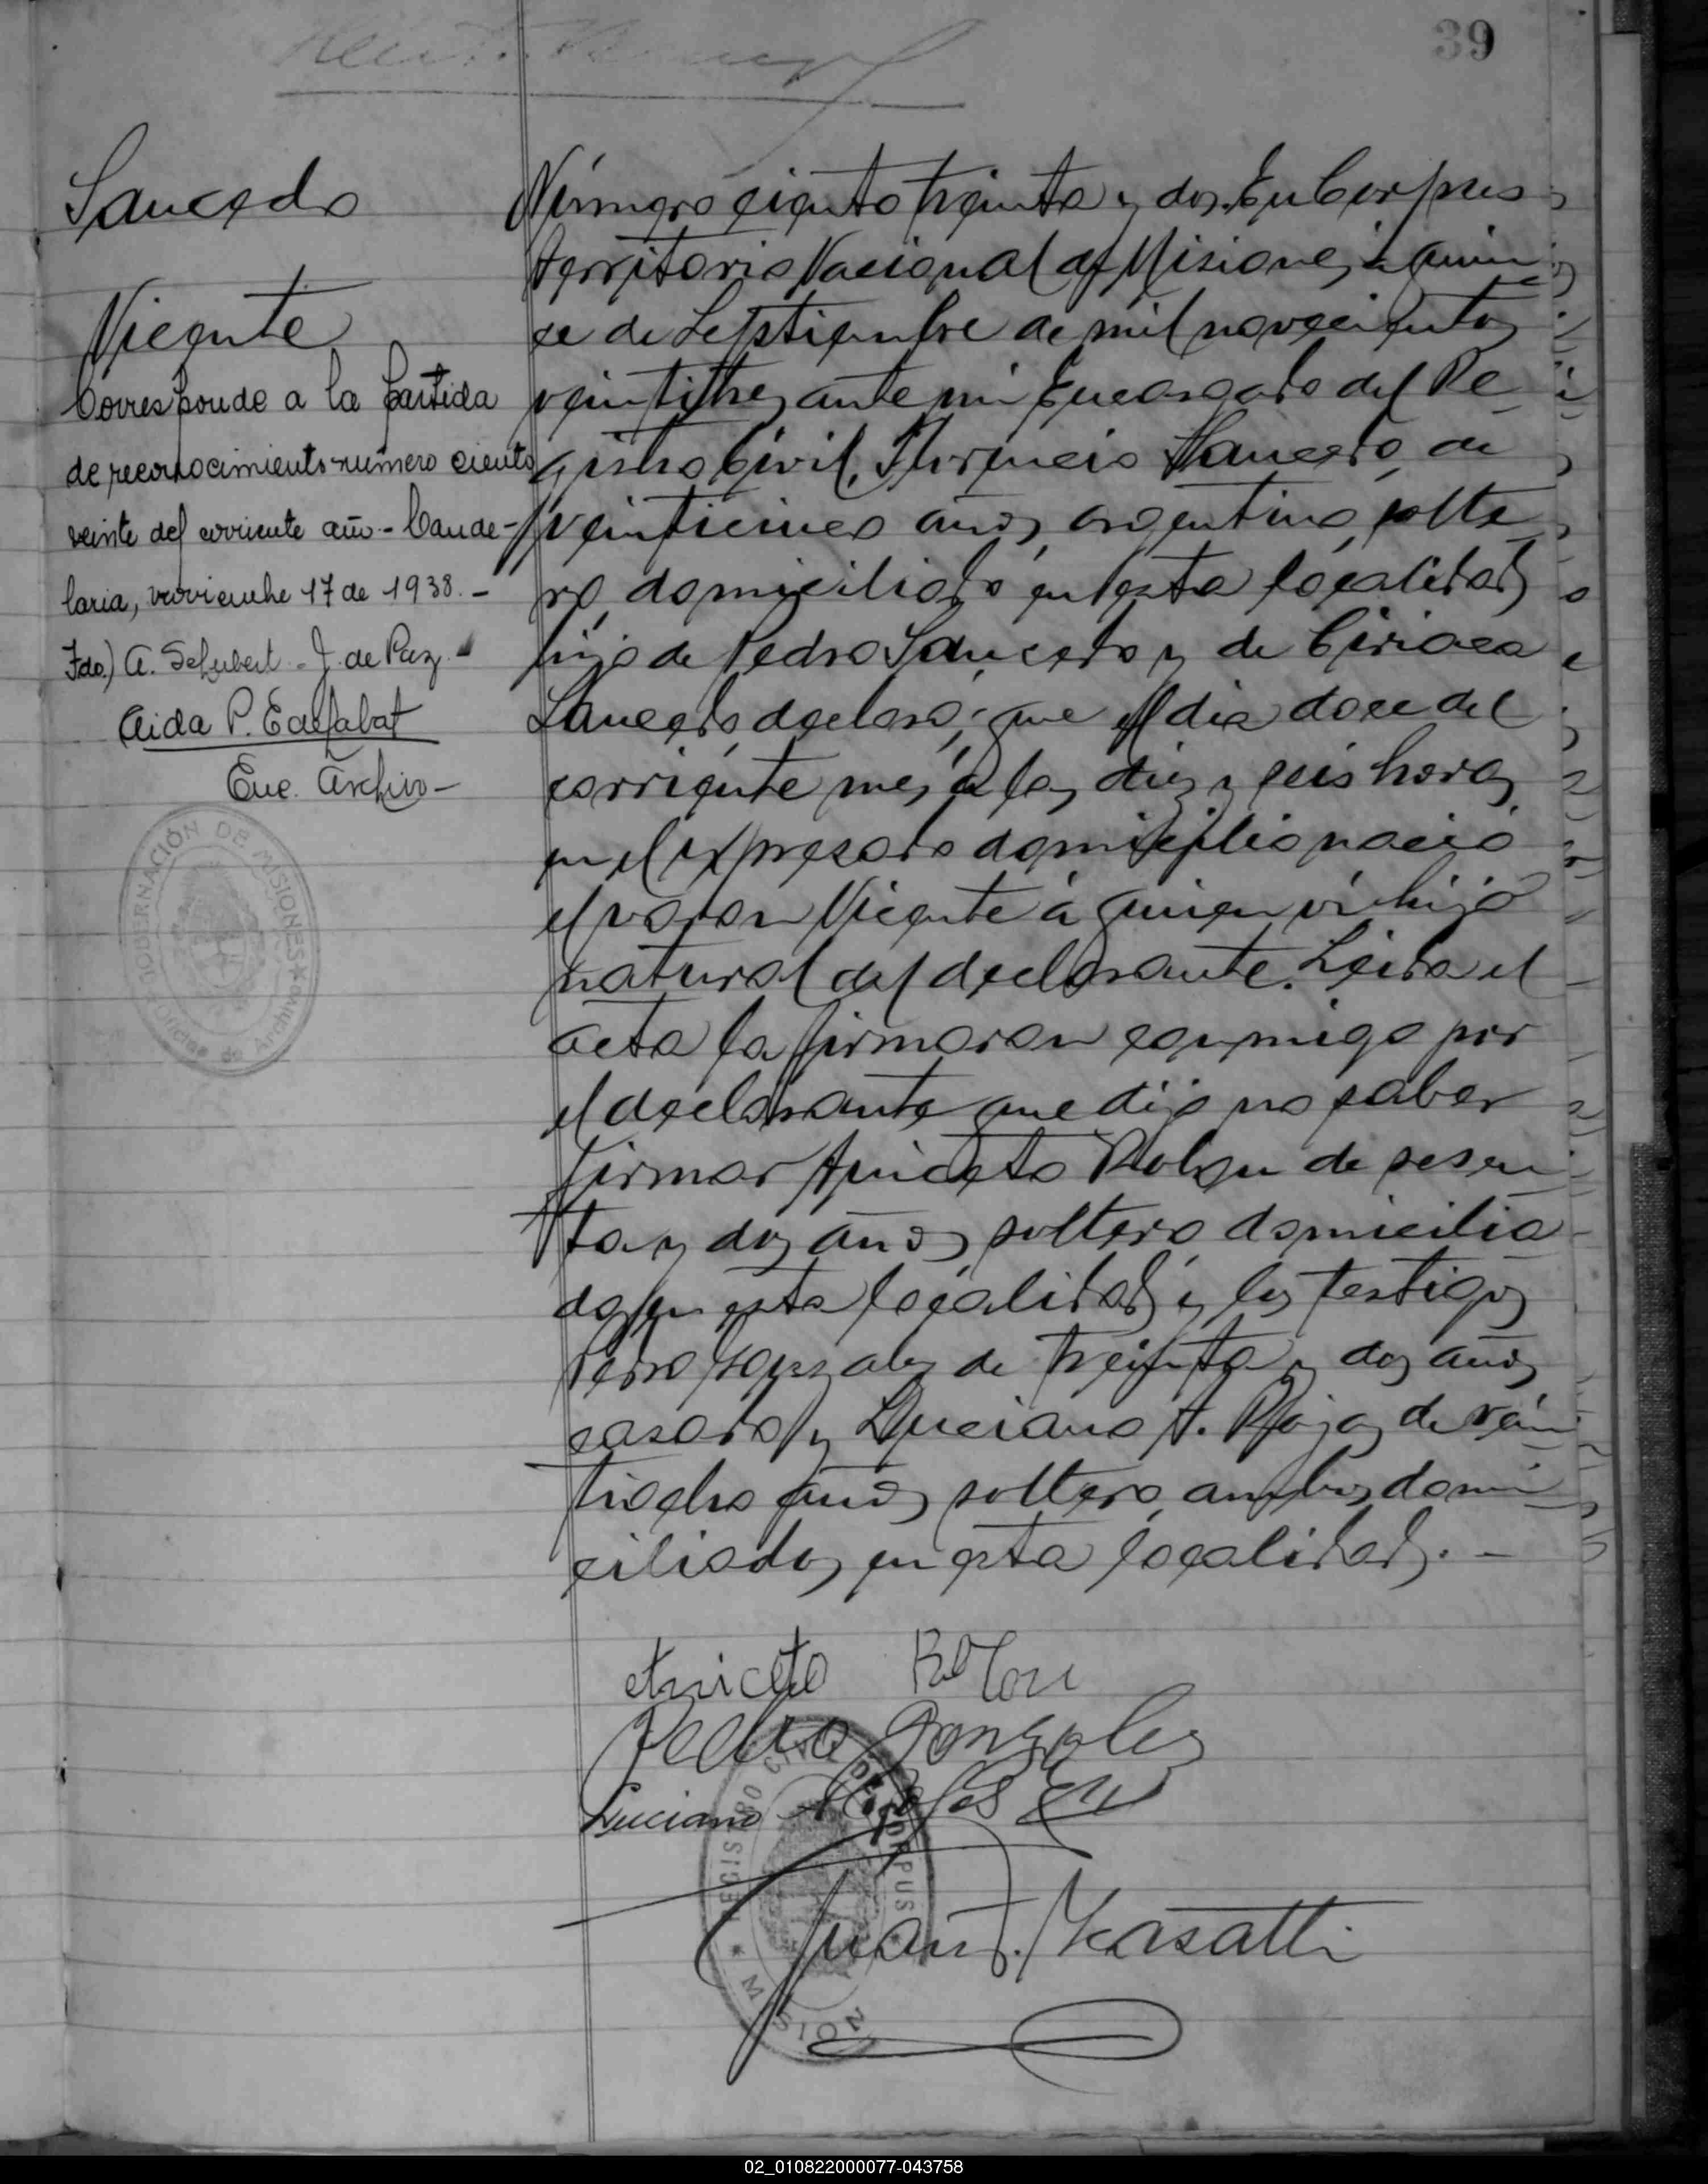 39
Saucedo
Vicente
Corresponde a la partida
de reconocimiento número ciento
veinte del corriente año - Cande-
laria, noviembre 17 de 1938. -
Fdo.) A. Schubert - J. de Paz. -
Aida P. de
Enc. Archivo -
GOBERNACIÓN DE MISIONES
Oficina de Archivo
Número ciento treinta y dos. En Corpus
territorio Nacional de Misiones, a quin
ce de Septiembre de mil novecientos
veintitres ante mi Encargado del Re
gistro Civil, Florencio Saucedo, de
veinticinco años, argentino, solte
ro, domiciliado en esta localidad
hijo de Pedro Saucedo y de Ciriaca
Saucedo declaró; que el dia doce del
corriente mes, a las diez y seis horas
en el expresado domicilio nació
el varon Vicente á quien vi hijo
natural del declarante. Leida el
acta la firmaron conmigo por
el declarante que dijo no saber
firmar Aniceto Rolon de sesen
ta y dos años soltero domicilia
do en esta localidad y los testigos
Pedro Gonzales de treinta y dos años
casado y Luciano A. Rojas de vein
tiocho años, soltero, ambos domi
ciliados en esta localidad. -
Aniceto Rolon
Pedro Gonzales
Luciano A. Rojas
REGISTRO CIVIL DE CORPUS
MISIONES
Juan J. Masatti
02_010822000077-043758